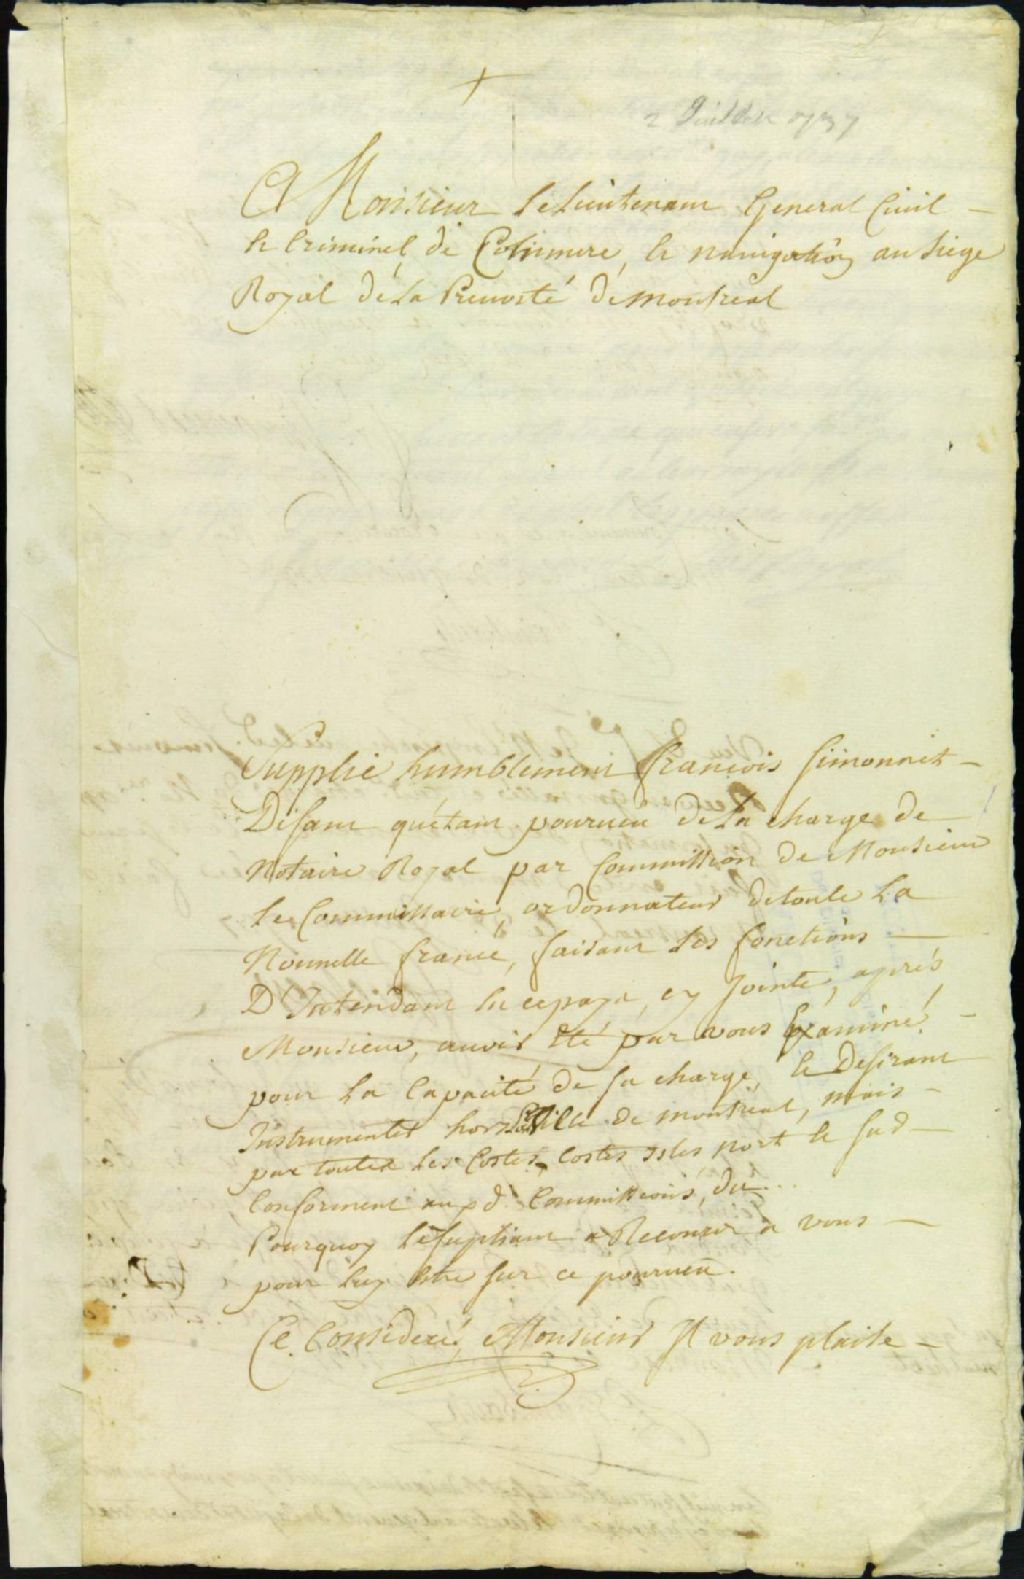 2 Juillet 1737
A Monsieur Le Lieutenant General Civil
& Criminel de Commerce, & navigation au siege
Royal de La Prevosté de Montreal
Supplie humblement françois Simonnet
Disant quétant pourveu de La charge de
Notaire Royal par Commission de Monsieur
Le Commissaire ordonnateur detoute La
Nouvelle france, faisant Les fonctions
D'Intendant en cepays, cy Jointe, aprés
Monsieur, avoir Eté par vous Examiné
pour La Capacité de sa charge, & Desirant
Instrumenter hors ville de montreal, mais
par toutes Les Costes Isles nort & sud
Conforment aux d. Commissions, du
Pourquoy Lesupliant a Recours a vous
pour luy Etre sur ce pourveu.
Ce Consideré, Monsieur Il vous plaise